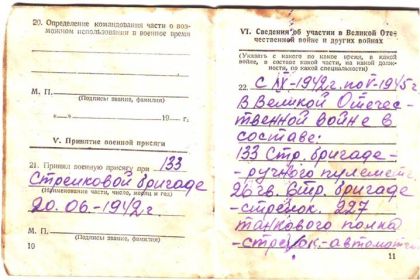 20. Определение командования части о воз-
можном использовании в военное время
М. П.
(Подпись звание, фамилия)
"—"—————19—— г.
V. Принятие военной присяги
21. Принял военную присягу при 133
Стрелковой бригаде
(Наименование части, число, месяц и год)
20.06.-1942 г
М. П.
(Подпись звание, фамилия)
10
VI. Сведения об участии в Великой Оте-
чественной войне и других войнах
(Указать с какого по какое время, в какой
войне, в составе какой части, на какой должно-
сти, по какой специальности)
22. С IV-1942 г. по V-1945 г
В Великой Отечес-
твенной войне в
составе:
133 Стр. бригаде -
- ручного пулеметч.
26 гв. в. стр. бригаде
- стрелок. 227
танкового полка
- стрелок-автоматч
11